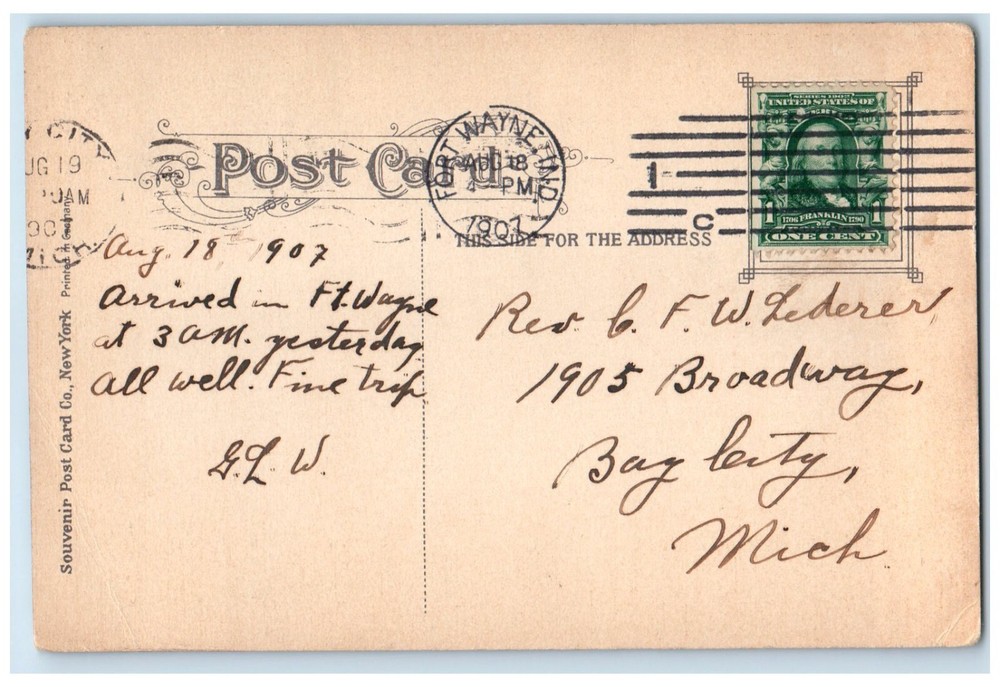 Y CITY
AUG 19
AM
190
MICH
Post Card
FORT WAYNE, IND.
AUG 18
4 - PM
1907
1
C
SERIES 1902
UNITED STATES OF
1 1706 FRANKLIN 1790 1
ONE CENT
THIS SIDE FOR THE ADDRESS
Aug. 18 1907
Arrived in Ft. Wayne
at 3 AM. yesterday
all well. Fine trip
G. L. W.
Rev. C. F. W. Lederer,
1905 Broadway,
Bay City,
Mich
Souvenir Post Card Co., New York Printed in Germany